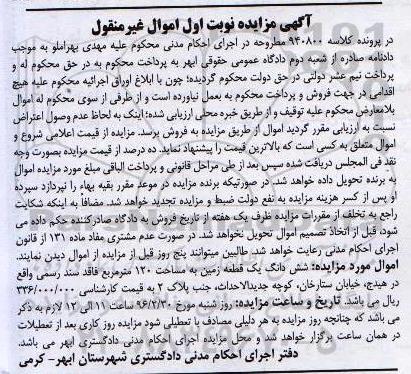 آگهی مزایده نوبت اول اموال غیرمنقول
در پرونده کلاسه ۹۴۰۸۰۰ مطروحه در اجرای احکام مدنی محکوم علیه مهدی بهراملو به موجب
دادنامه صادره از شعبه دوم دادگاه عمومی حقوقی ابهر به پرداخت محکوم به در حق محکوم له و
پرداخت نیم عشر دولتی در حق دولت محکوم گردیده؛ چون با ابلاغ اوراق اجرائیه محکوم علیه هیچ
اقدامی در جهت فروش و پرداخت محکوم به بعمل نیاورده است و از طرفی از سوی محکوم له اموال
بلامعارض محکوم علیه توقیف و از طریق خبره محلی ارزیابی شده؛ اینک به لحاظ عدم وصول اعتراض
نسبت به ارزیابی مقرر گردید اموال از طریق مزایده به فروش برسد. مزایده از قیمت اعلامی شروع و
اموال متعلق به کسی است که بالاترین قیمت را پیشنهاد نماید. ده درصد از قیمت مزایده بصورت وجه
نقد فی المجلس دریافت شده سپس بعد از طی مراحل قانونی و پرداخت الباقی مبلغ مورد مزایده اموال
به برنده تحویل داده خواهد شد. در صورتیکه برنده مزایده در موعد مقرر بقیه بهاء را نپردازد سپرده
او پس از کسر هزینه مزایده به نفع دولت ضبط و مزایده تجدید خواهد شد. مضافاً به اینکه شکایت
راجع به تخلف از مقررات مزایده ظرف یک هفته از تاریخ فروش به دادگاه صادرکننده حکم داده می
شود، قبل از اتخاذ تصمیم اموال تحویل نخواهد شد. در صورت عدم مشتری مفاد ماده ۱۳۱ از قانون
اجرای احکام مدنی رعایت خواهد شد. طالبین میتوانند پنج روز قبل از مزایده از اموال دیدن نمایند.
اموال مورد مزایده: شش دانگ یک قطعه زمین به مساحت ۱۲۰ مترمربع فاقد سند رسمی واقع
در هیدج، خیابان ستارخان، کوچه جدیدالاحداث، جنب پلاک ۲ به قیمت کارشناسی ۳۳۶/۰۰۰/۰۰۰
ریال می باشد. تاریخ و ساعت مزایده: روز شنبه مورخ ۹۶/۲/۳۰ ساعت ۱۱ الی ۱۲ لازم به ذکر
می باشد که چنانچه روز مزایده به هر دلیلی مصادف با تعطیلی شود مزایده روز کاری بعد از تعطیلات
در همان ساعت برگزار خواهد شد و محل مزایده اجرای احکام مدنی دادگستری ابهر می باشد.
دفتر اجرای احکام مدنی دادگستری شهرستان ابهر- کرمی